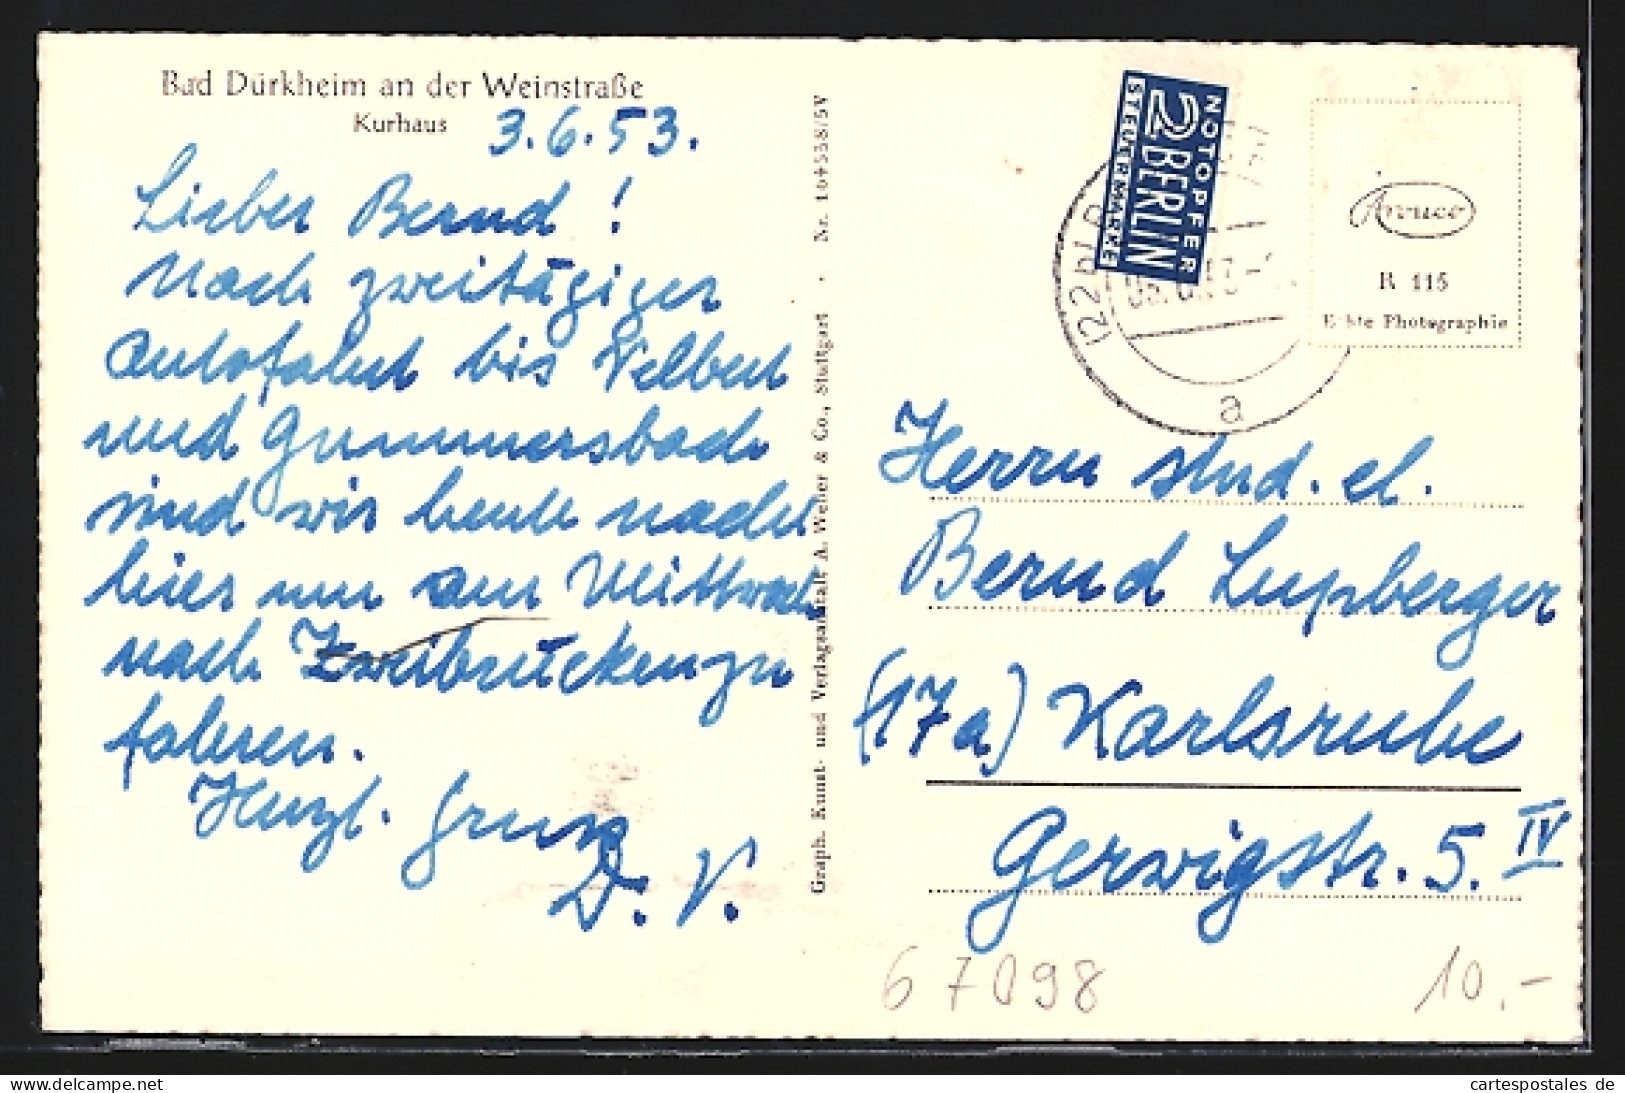 Bad Dürkheim an der Weinstraße
Kurhaus
3.6.53.
Lieber Bernd!
Nach zweitägiger
Autofahrt bis Velbert
und Gummersbach
sind wir heute nacht
hier um am Mittwoch
nach Zweibrücken zu
fahren.
Herzl. Gruss
D. V.
Graph. Kunst- und Verlagsanstalt A. Weber & Co., Stuttgart · Nr.
NOTOPFER
2 BERLIN
STEUERMARKE
(22b)
a
R 115
Echte Photographie
Herrn stud. el.
Bernd Lupberger
(17a) Karlsruhe
Gerwigstr. 5. IV
67098
10.-
Lieferzeit Mo-Fr
cartespostales de